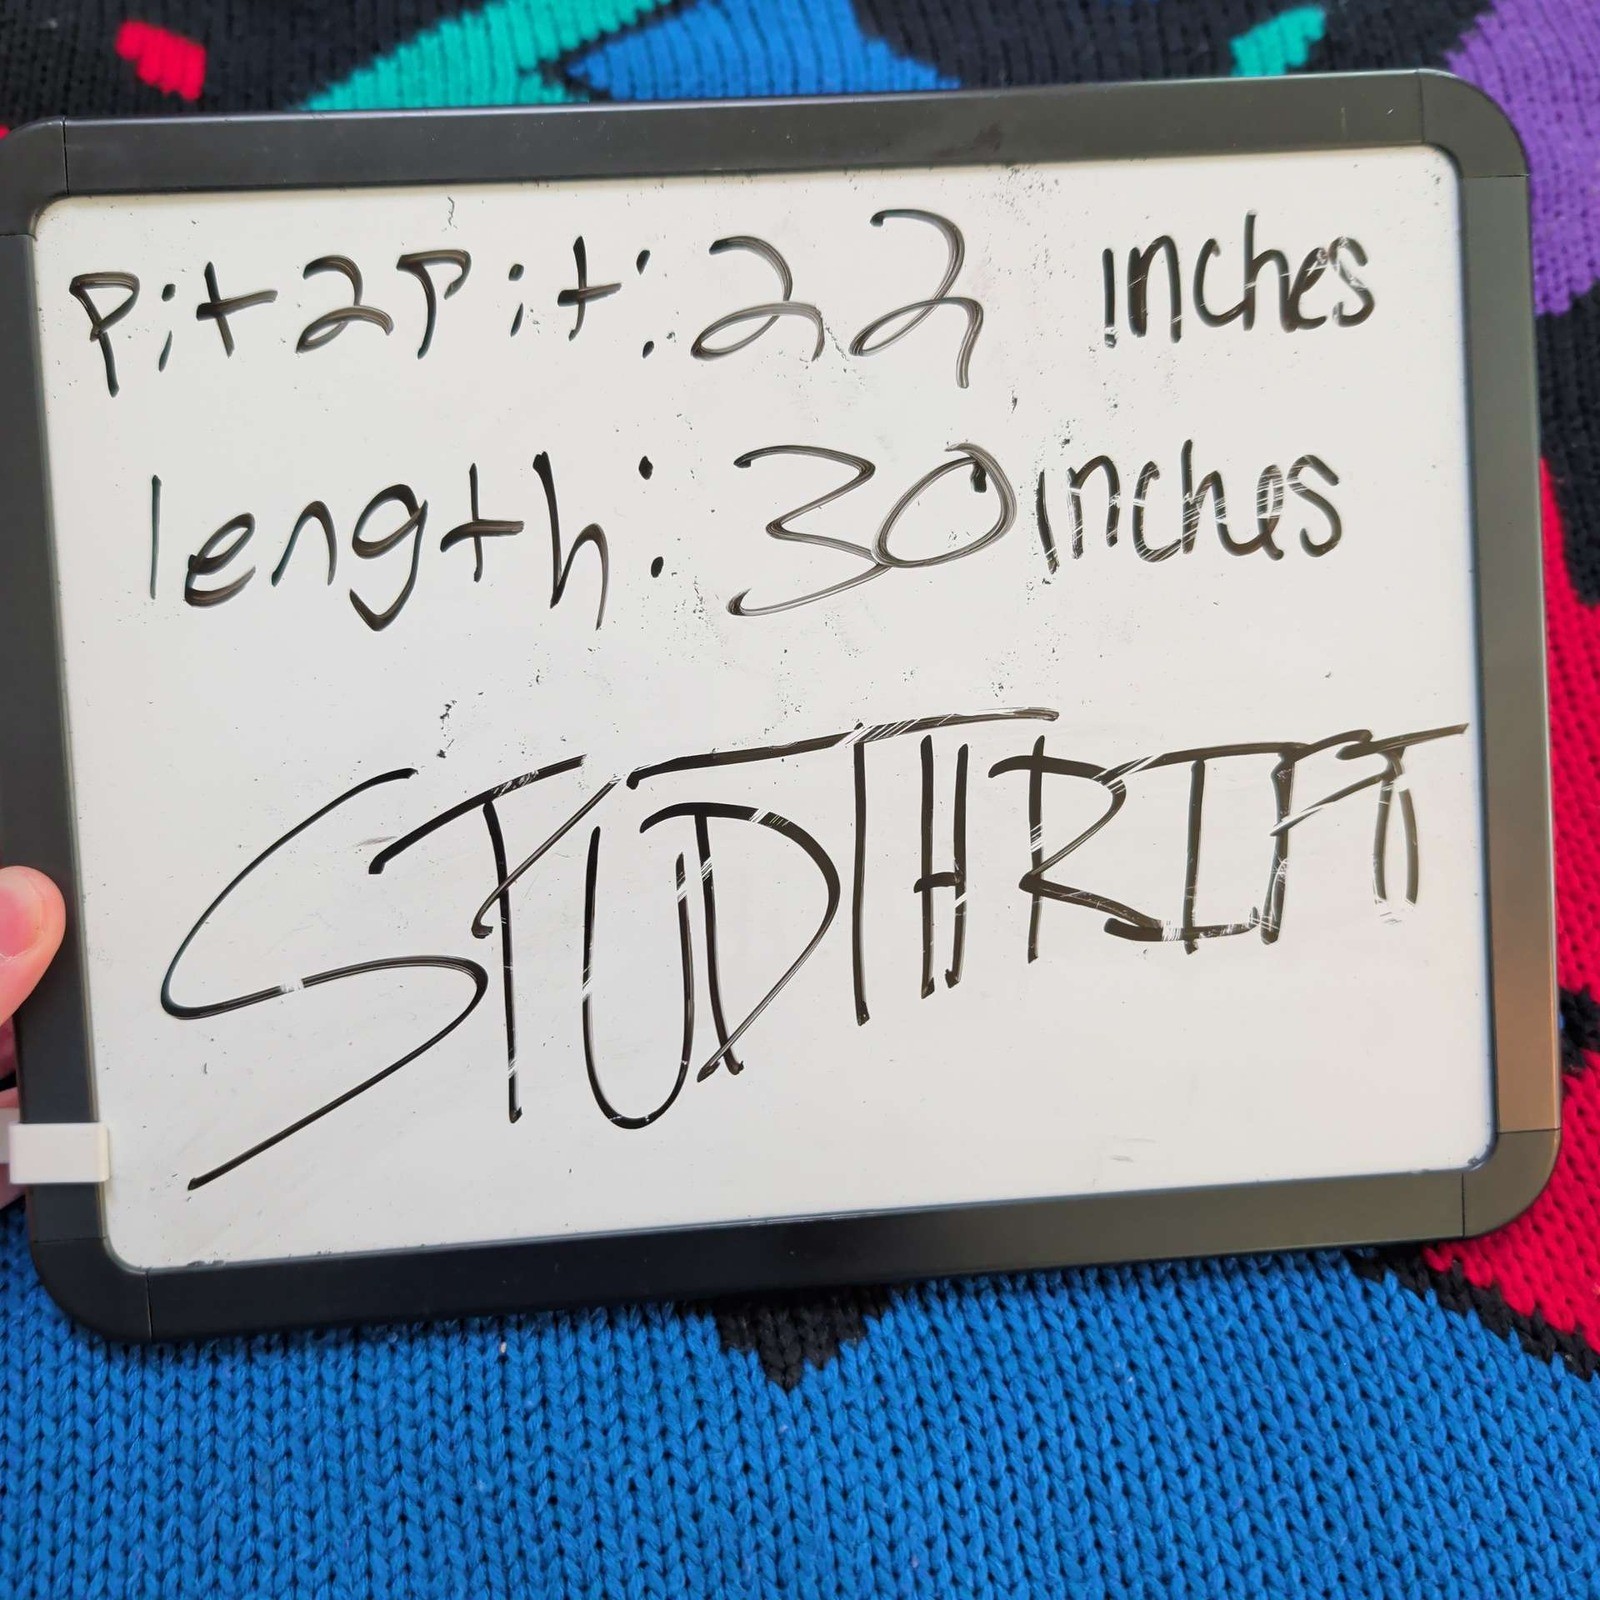 Pit2Pit: 22 inches
length: 30 inches
STUDTHRIFT